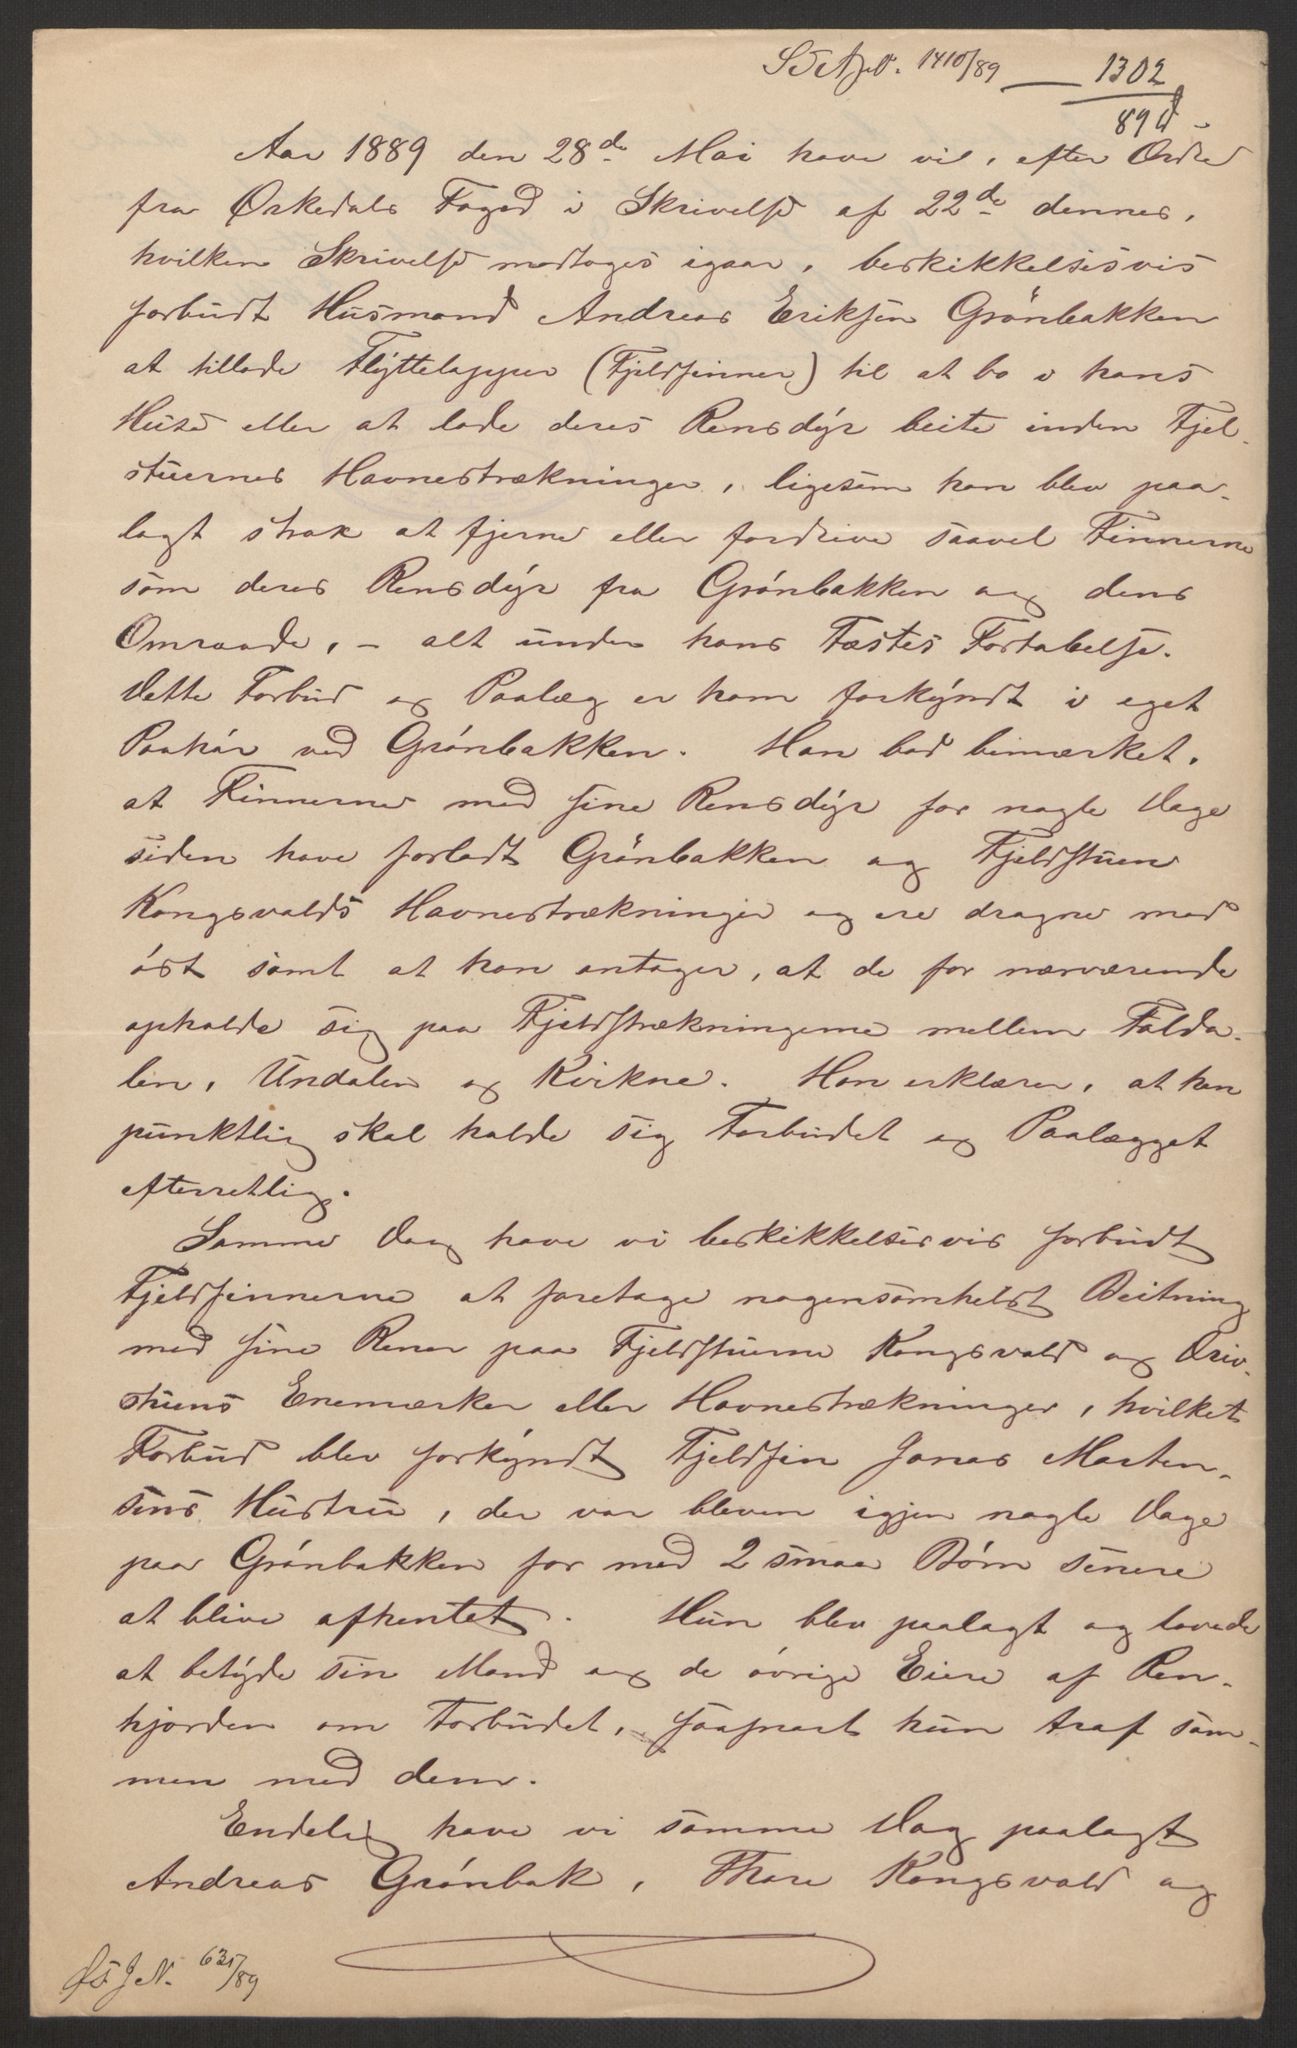 1410/89 — 1302
89 d
Aar 1889 den 28de Mai have vi, efter Ordre
fra Orkedals Foged i Skrivelse af 22de dennes,
hvilken Skrivelse modtoges igaar, beskikkelsesvis
forbudt Husmand Andreas Eriksen Grönbakken
at tillade Flyttelapper (Fjeldfinner) til at bo i hans
Huse eller at lade deres Rensdyr beite inden Fjel-
stuernes Havnestrækninger, ligesom han blev paa-
lagt strax at fjerne eller fordrive saavel Finnerne
som deres Rensdyr fra Grónbakken og dens
Omraade, – alt under hans Fæstes Fortabelse.
Dette Forbud og Paalæg er ham forkyndt i eget
Paahör ved Grónbakken. Han bad bemærket,
at Finnerne med sine Rensdyr for nogle Dage
siden have forladt Grönbakken og Fjeldstuen
Kongsvolds Havnestrækninger og ere dragne mod
óst samt at han antager, at de for nærværende
opholde sig paa Fjeldstrækningerne mellem Folda-
len, Undalen og Kvikne. Han erklærer, at han
punktlig skal holde sig Forbudet og Paalægget
efterretlig.
Samme Dag have vi beskikkelsesvis forbudt
Fjeldfinnerne at foretage nogensomhelst Beitning
med sine Rener paa Fjeldstuerne Kongsvold og Driv-
stuens Enemærker eller Havnestrækninger, hvilket
Forbud blev forkyndt Fjeldfin Jonas Morten-
sens Hustru, der var bleven igjen nogle Dage
paa Grónbakken for med 2 smaa Börn senere
at blive afhentet. Hun blev paalagt og lovede
at betyde sin Mand og de óvrige Eiere af Ren-
hjorden om Forbudet, saasnart hun traf sam-
men med dem.
Endelig have vi samme Dag paalagt
Andreas Grónbak, Thore Kongsvold og
J.N. 631/89